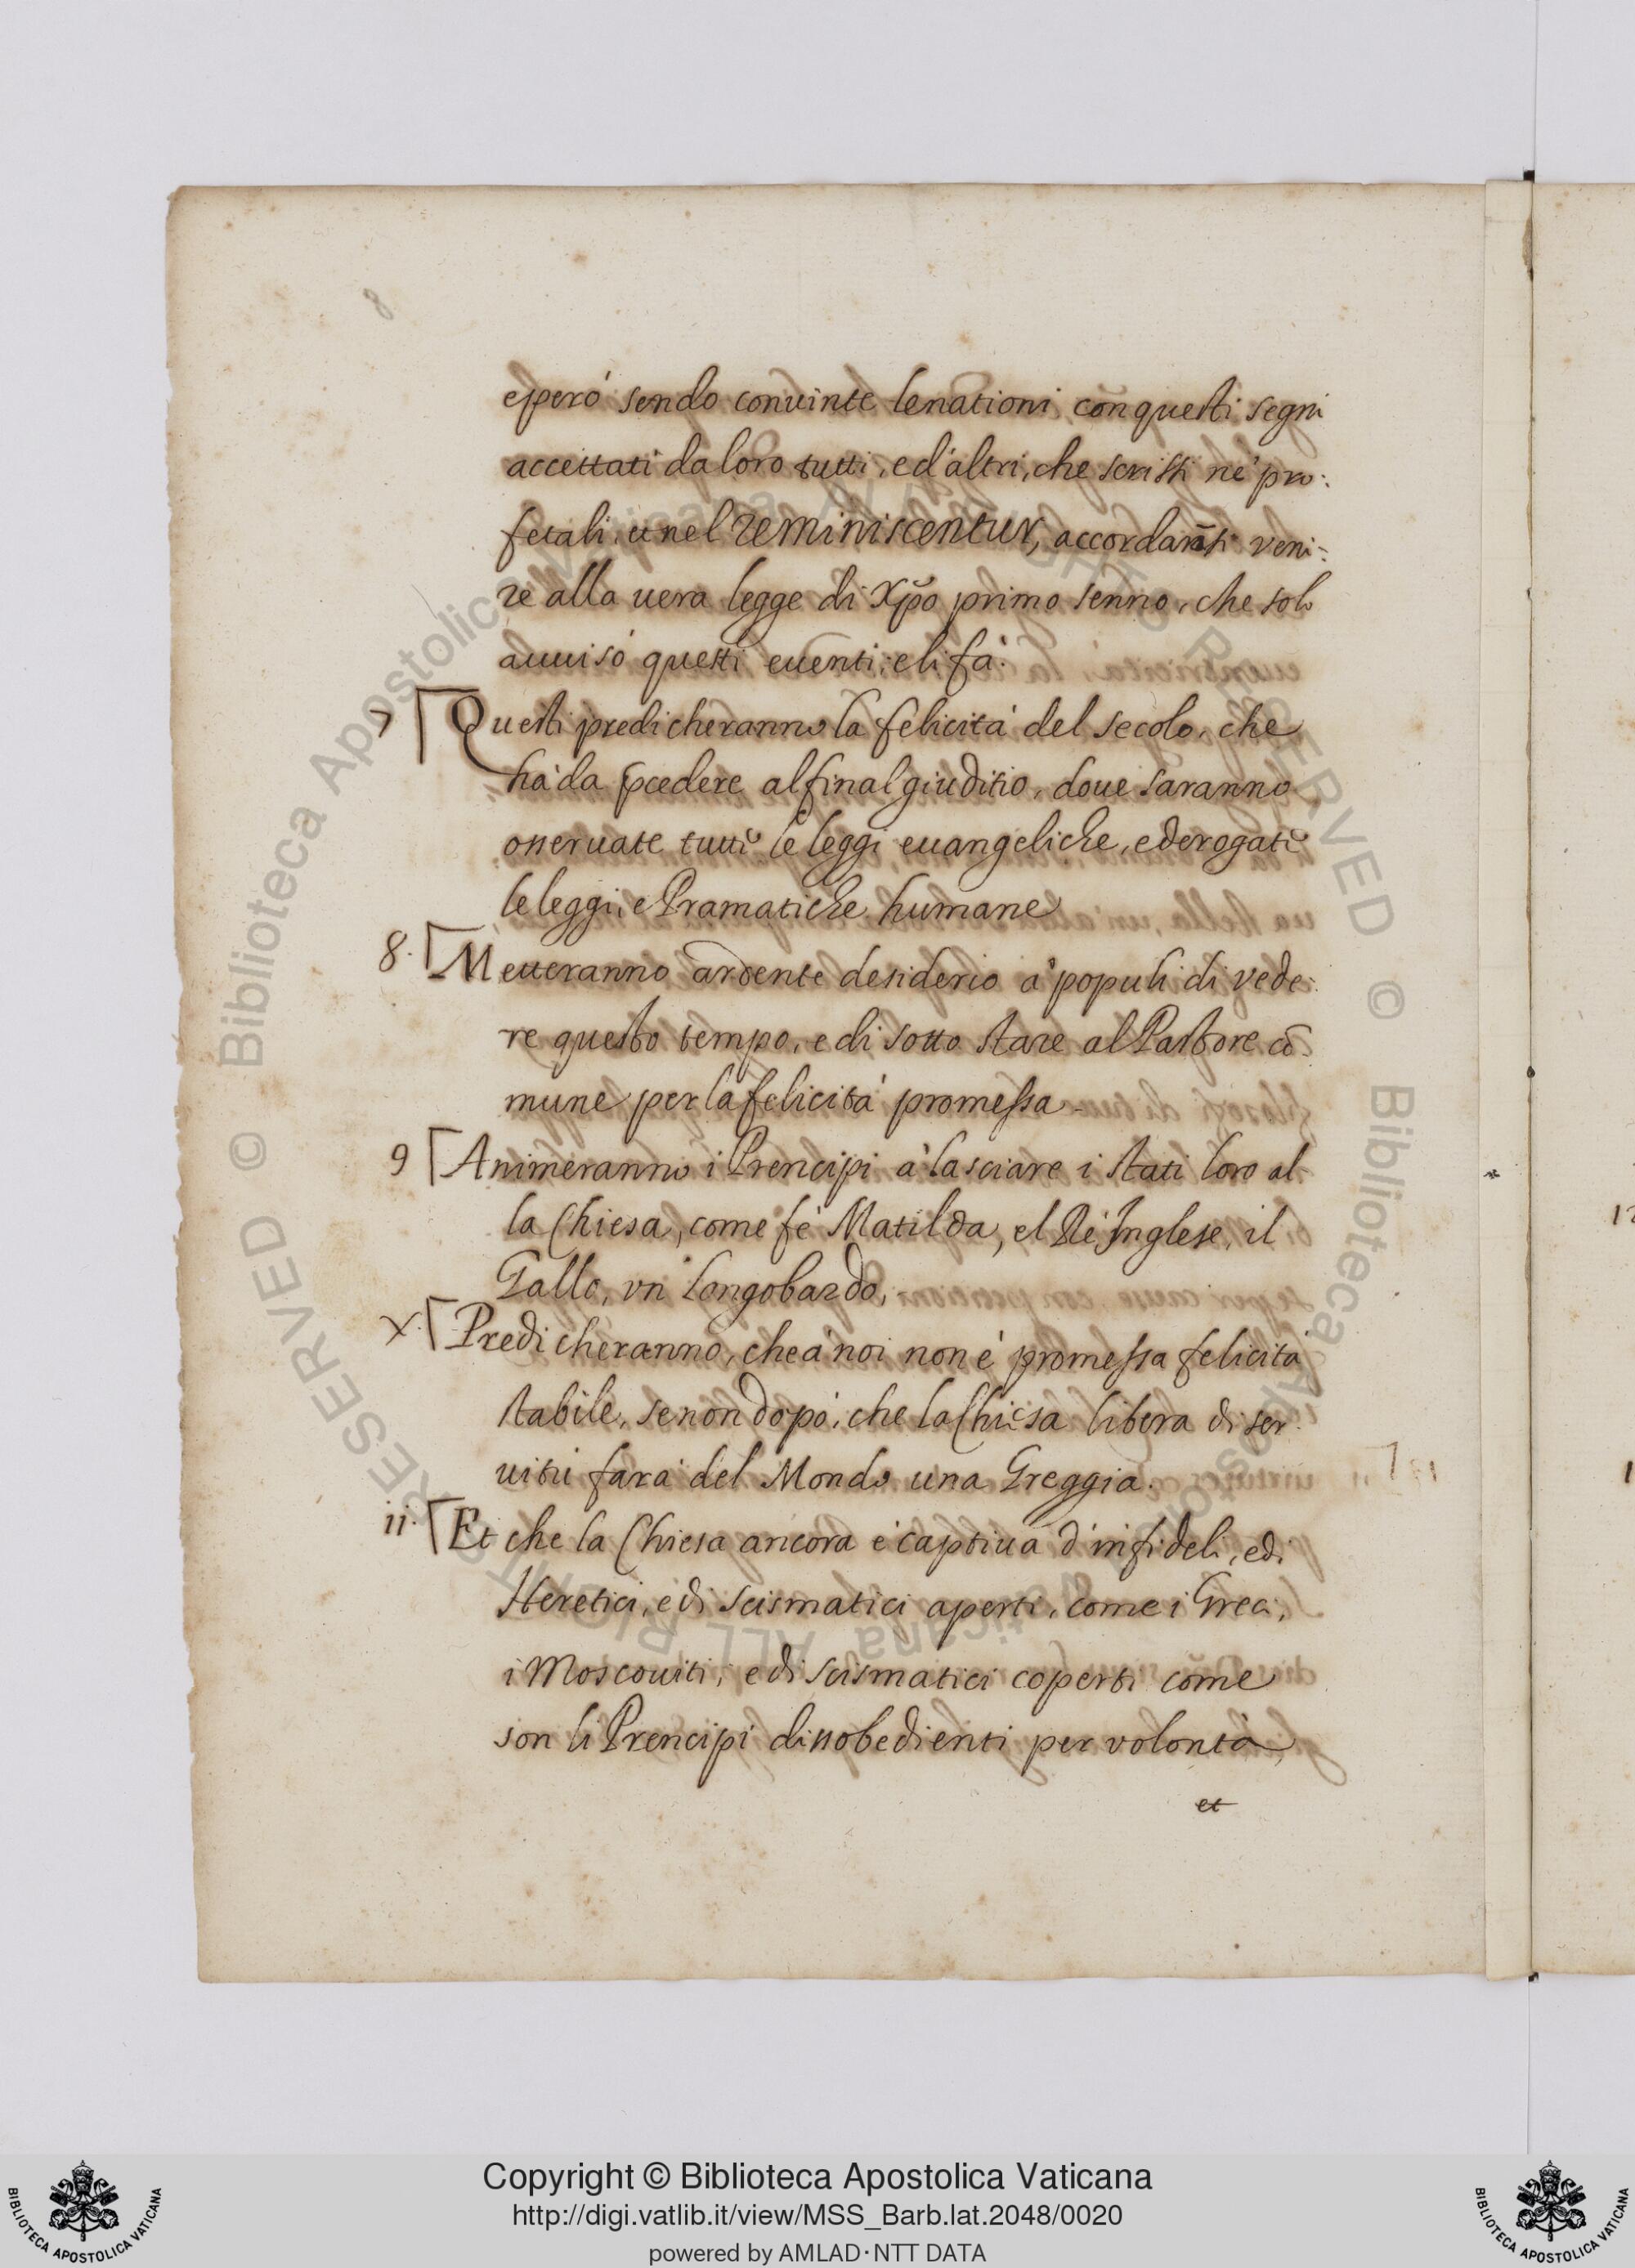 8
e però sendo conuinte le nationi con questi segni
accettati da loro tutti, e d'altri, che scrissi ne' pro:
fetali, e nel reminiscentur, accordarãsi veni:
re alla uera legge di Xp̃o primo senno, che solo
auuisò questi euenti, e li fà.
7 Questi predicheranno la felicità del secolo, che
hà da p̃cedere al final giuditio, doue saranno
osseruate tutte le leggi euangeliche, e derogate
le leggi, e Pramatiche humane
8. Metteranno ardente desiderio a' populi di vede:
re questo tempo, e di sotto stare al Pastore cõ:
mune per la felicità promessa.
9 Animeranno i Prencipi à lasciare i stati loro al:
la Chiesa, come fè Matilda, el Rè Inglese, il
Gallo, un Longobardo,
X. Predicheranno, che à noi non è promessa felicità
stabile, se non dopò, che la Chiesa libera di ser:
uitù farà del Mondo una Greggia.
ii. Et che la Chiesa ancora è captiua d'infideli, e di
Heretici, e di scismatici aperti, come i Greci,
i Moscouiti, e di scismatici coperti come
son li Prencipi dissobedienti per volontà,
et
Copyright © Biblioteca Apostolica Vaticana
http://digi.vatlib.it/view/MSS_Barb.lat.2048/0020
powered by AMLAD·NTT DATA
BIBLIOTECA APOSTOLICA VATICANA
BIBLIOTECA APOSTOLICA VATICANA